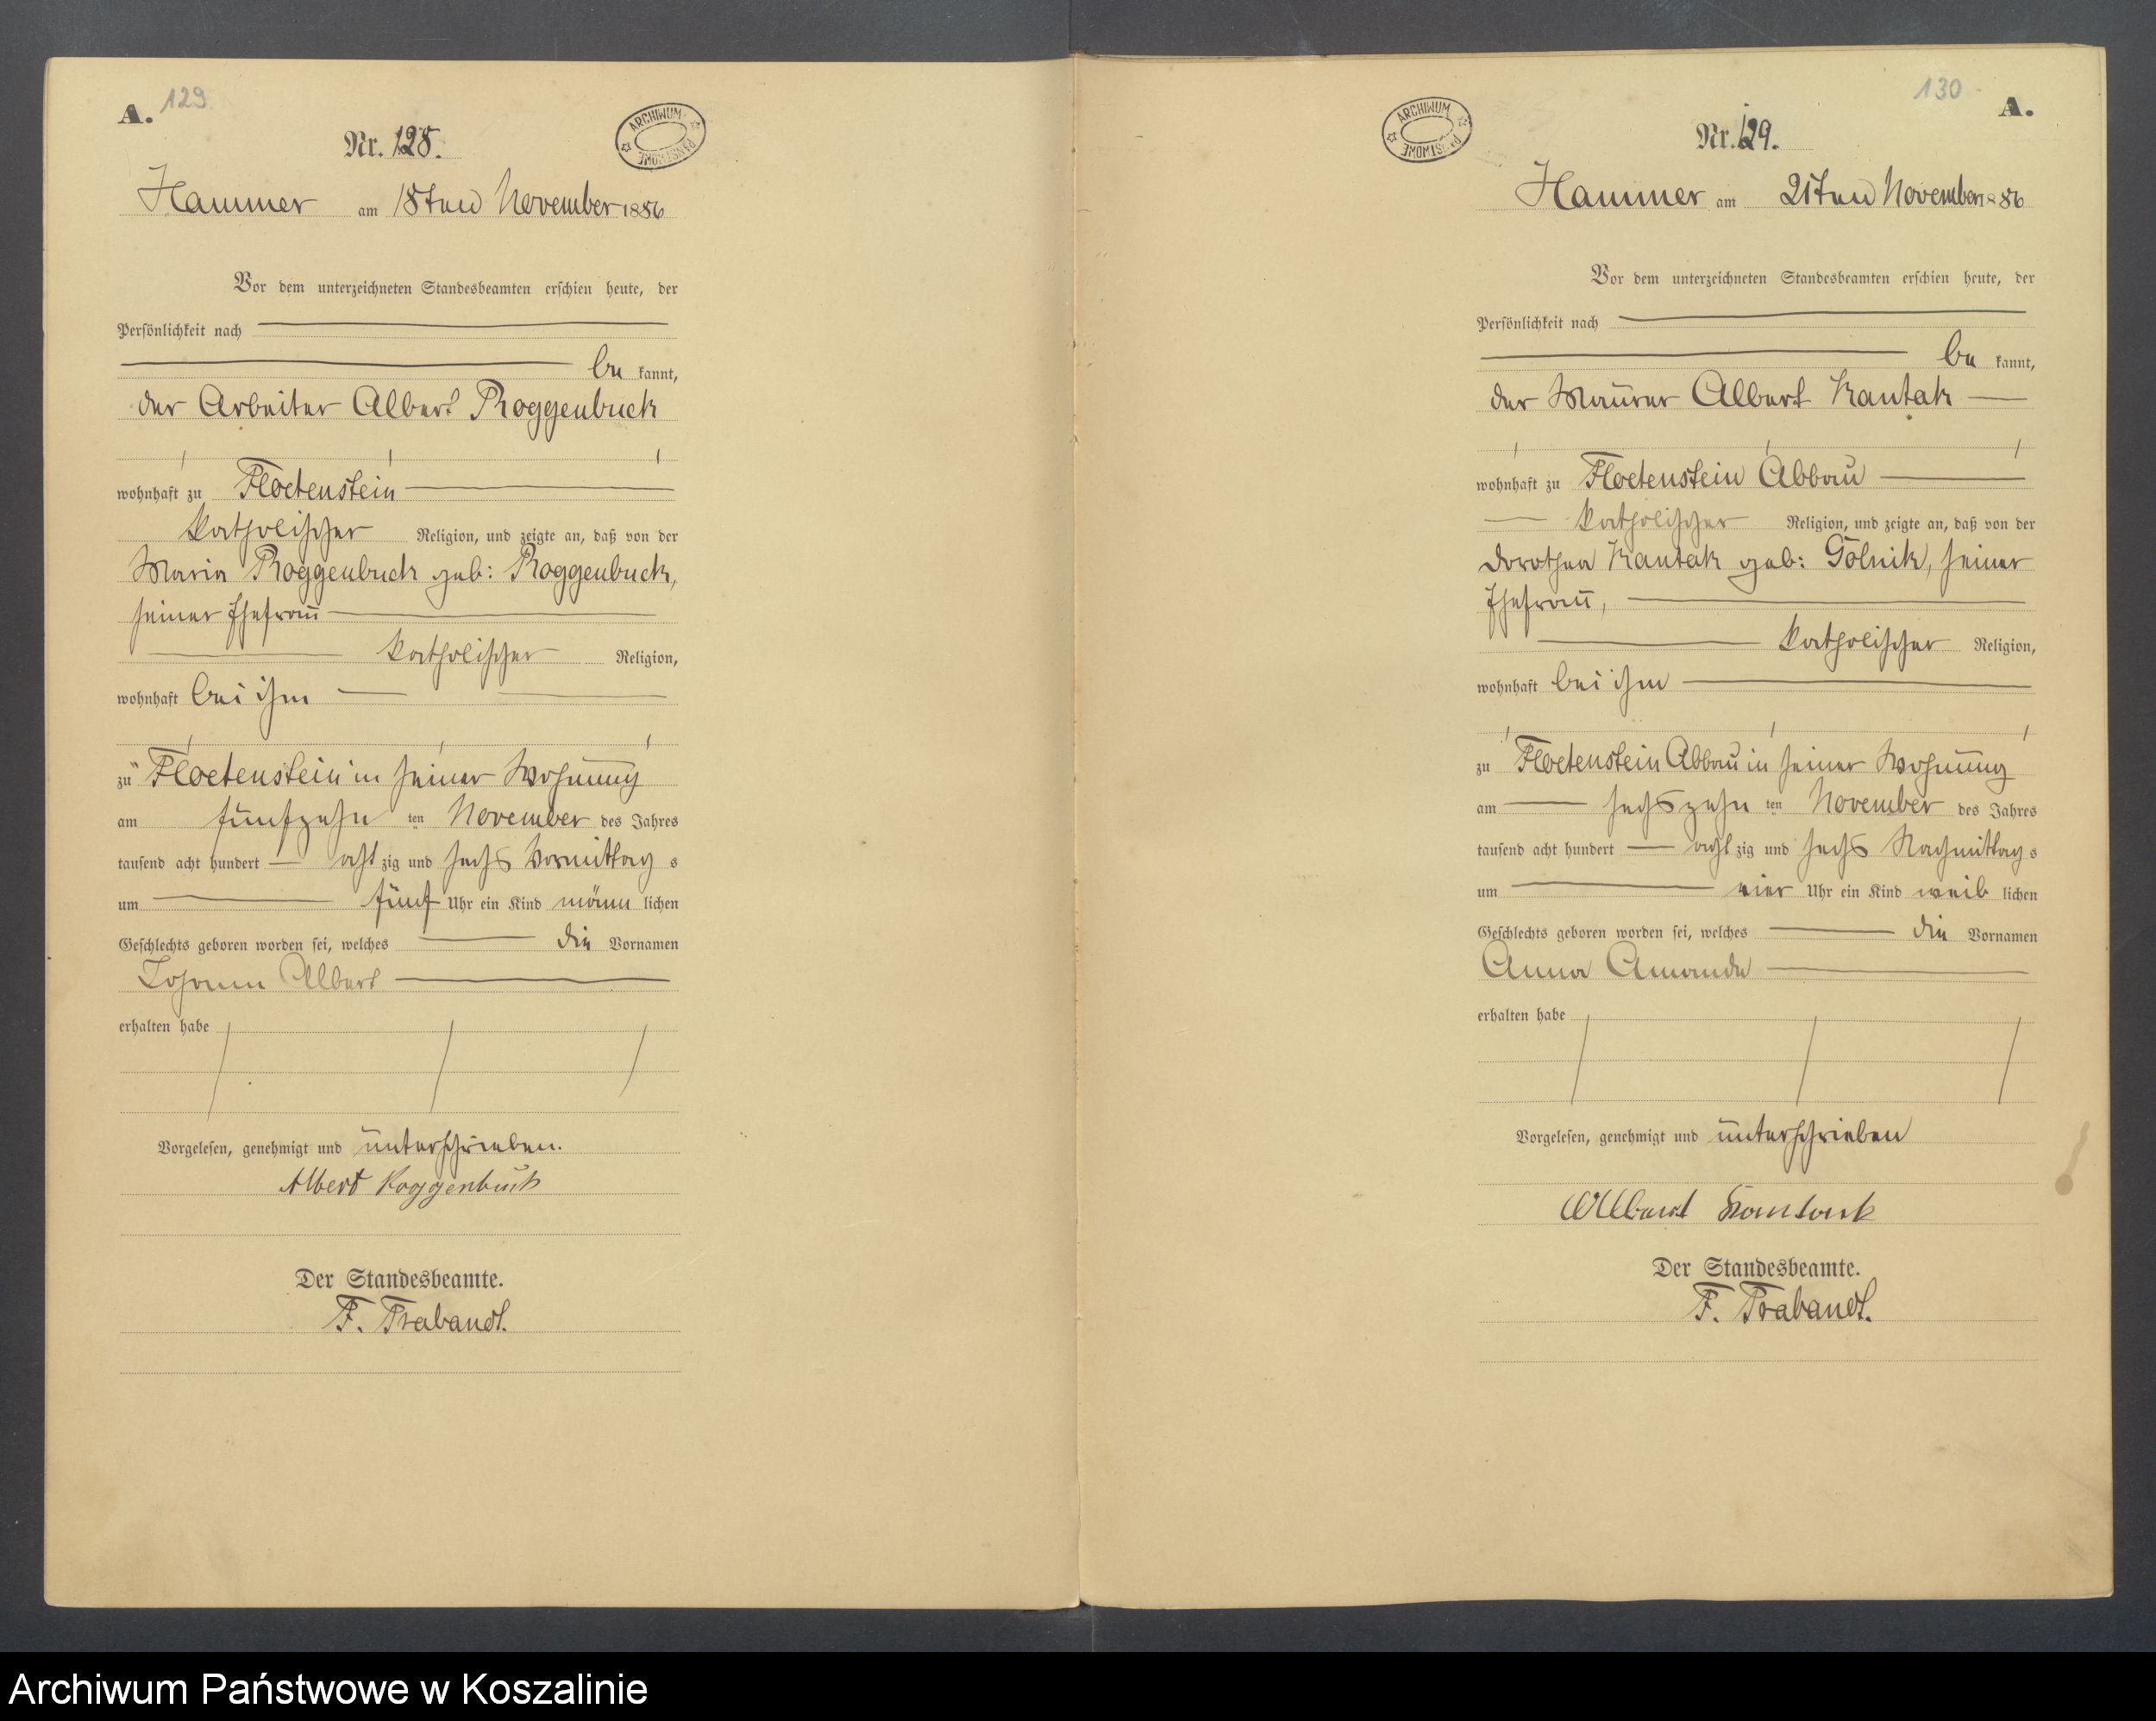 A. 129
ARCHIWUM PAŃSTWOWE
Nr. 128.
Hammer am 18ten November 1886
Vor dem unterzeichneten Standesbeamten erschien heute, der
Persönlichkeit nach
be kannt,
der Arbeiter Albert Roggenbuck
wohnhaft zu Floetenstein
katholischer Religion, und zeigte an, daß von der
Maria Roggenbuck geb: Roggenbuck,
seiner Ehefrau
katholischer Religion,
wohnhaft bei ihm
zu Floetenstein in seiner Wohnung
am fünfzehn ten November des Jahres
tausend acht hundert acht zig und sechs Vormittag s
um fünf Uhr ein Kind männ lichen
Geschlechts geboren worden sei, welches die Vornamen
Johann Albert
erhalten habe
Vorgelesen, genehmigt und unterschrieben.
Albert Roggenbuck
Der Standesbeamte.
F. Trabandt.
130 A.
ARCHIWUM PAŃSTWOWE
Nr. 129.
Hammer am 21ten November 1886
Vor dem unterzeichneten Standesbeamten erschien heute, der
Persönlichkeit nach
be kannt,
der Maurer Albert Kantak
wohnhaft zu Floetenstein Abbau
katholischer Religion, und zeigte an, daß von der
Dorothea Kantak geb: Golnik, seiner
Ehefrau,
katholischer Religion,
wohnhaft bei ihm
zu Floetenstein Abbau in seiner Wohnung
am sechszehn ten November des Jahres
tausend acht hundert acht zig und sechs Nachmittag s
um vier Uhr ein Kind weib lichen
Geschlechts geboren worden sei, welches die Vornamen
Anna Amanda
erhalten habe
Vorgelesen, genehmigt und unterschrieben
Albert Kantak
Der Standesbeamte.
F. Trabandt.
Archiwum Państwowe w Koszalinie